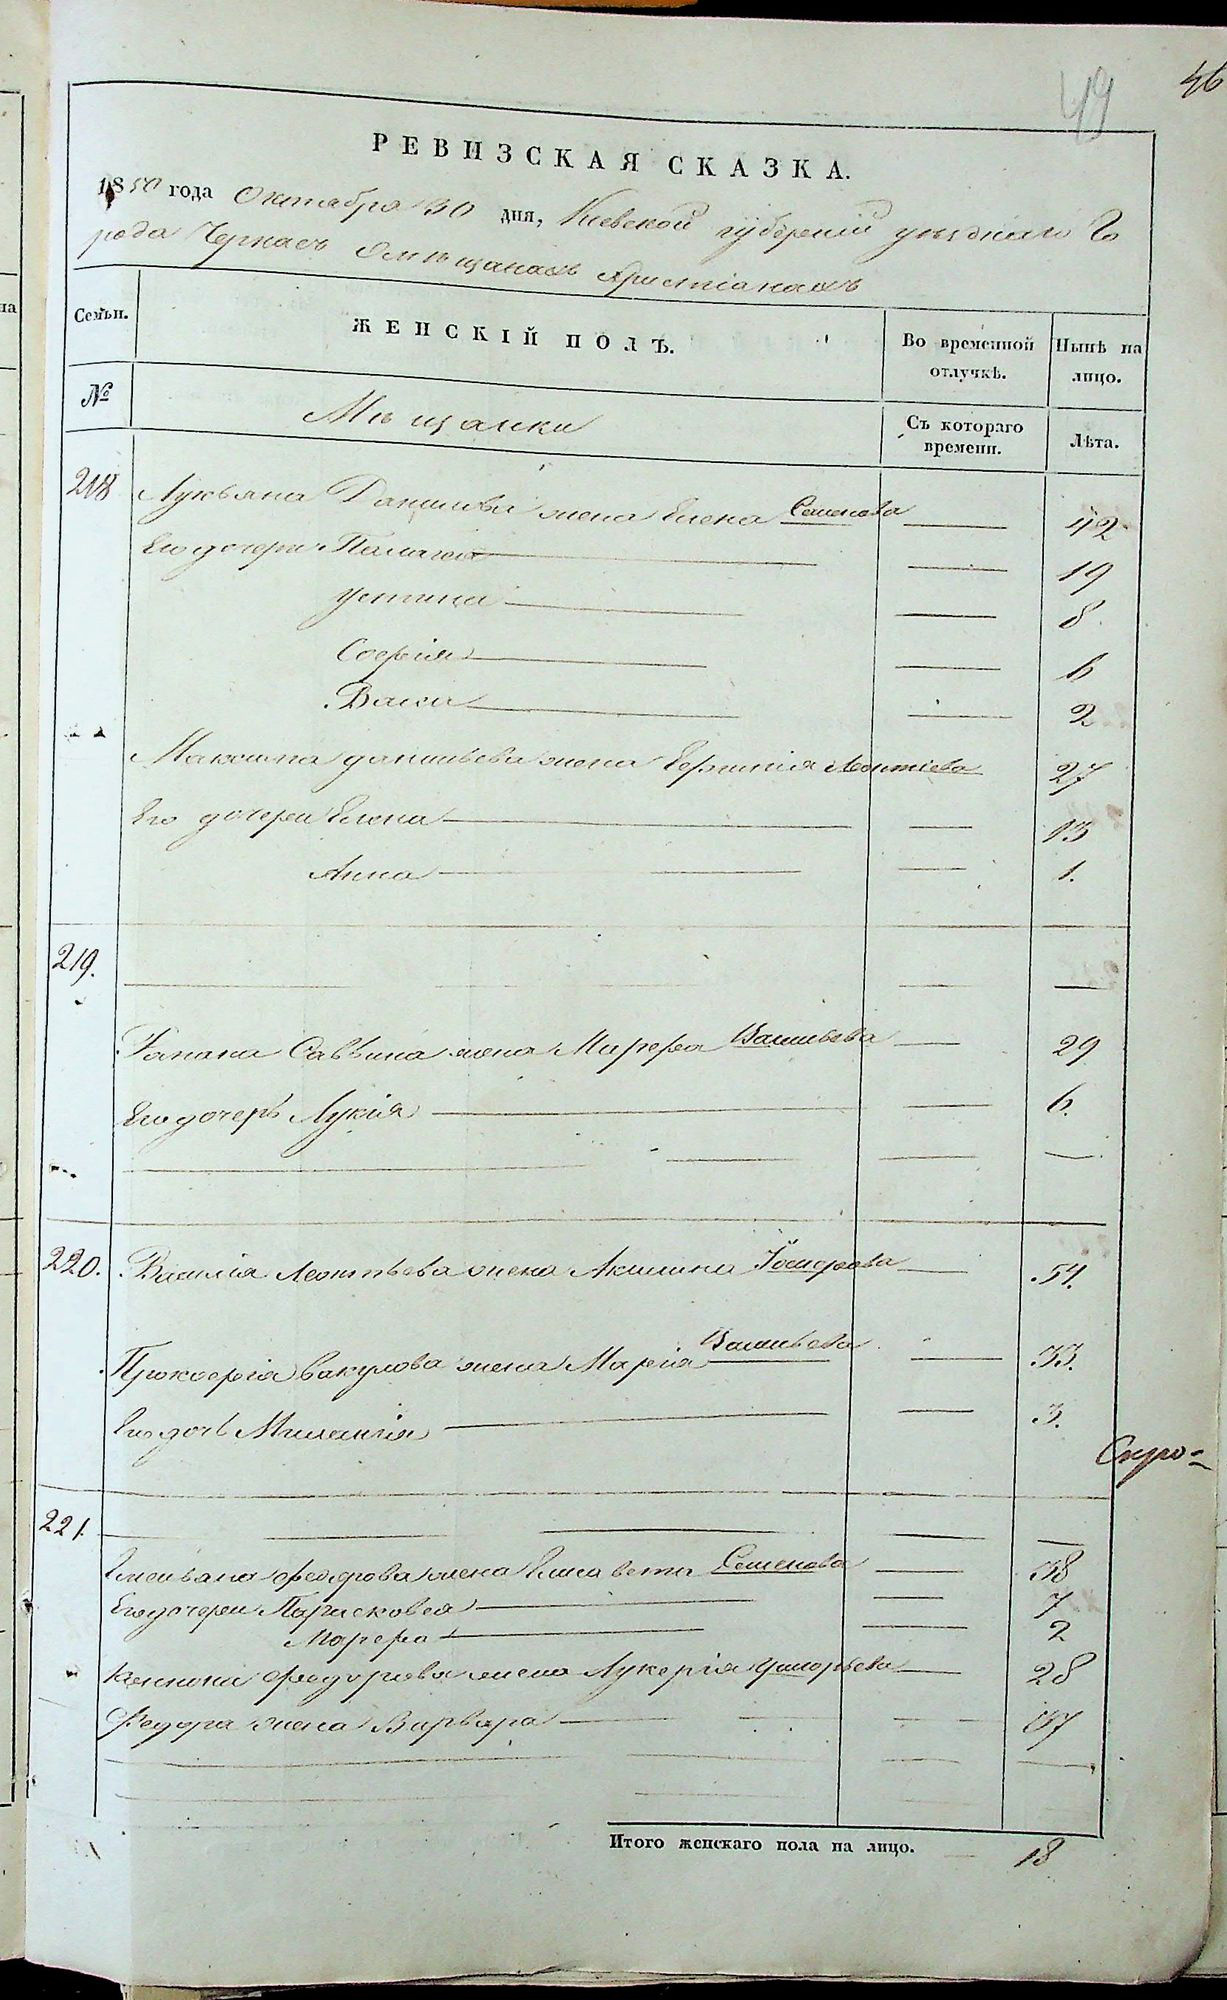 49
46
РЕВИЗСКАЯ СКАЗКА.
1850 года Октября 30 дня, Киевской губерніи уѣзднаго Го
рода Черкасъ о мѣщанахъ христіанахъ
Семьи.
ЖЕНСКІЙ ПОЛЪ.
Во временной отлучкѣ.
Нынѣ на лицо.
№
Мѣщанки
Съ котораго времени.
Лѣта.
218 Лукьяна Данилова жена Елена Семенова — 42
Его дочери Пелагея — 19
Устина — 8
Софія — 6
Васса — 2
Максима Данильева жена Евфимія Леонтіева 27
Его дочери Елена — 13
Анна — 1.
219.
Романа Саввина жена Марфа Васильева — 29
Его дочерь Лукія — 6.
220. Василія Леонтьева жена Акилина Ѳедорова — 54.
Прокофія Вакулова жена Марія Васильева — 33.
Его дочь Миланія — 3.
Скуро-
221.
Емельяна Федорова жена Елисавета Семенова — 38
Его дочери Парасковея — 7
Марфа — 2
Конона Федорова жена Лукерія Григорьева — 28
Федора жена Варвара — 37
Итого женскаго пола на лицо. 18